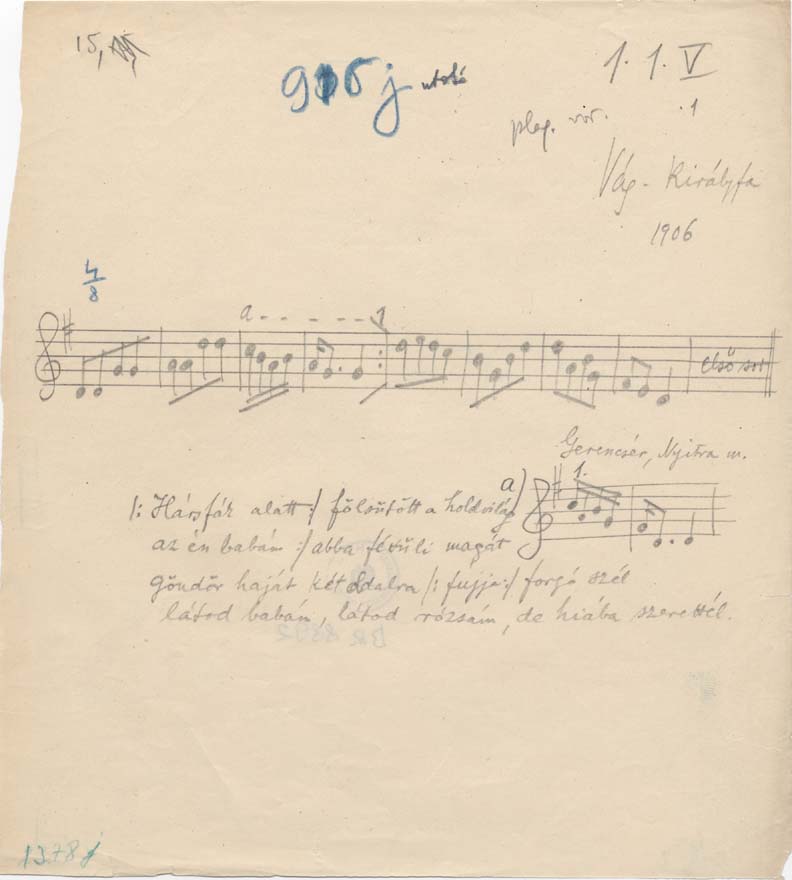 15,
915 j utolsó
1. 1. V
1
plag. vár.
Vág-Királyfa
1906
4/8
a - - - - - -
első sor
Gerencsér, Nyitra m.
a)
1.
/: Hársfáz alatt :/ fölsütött a holdvilág
az én babám :/ abba fésüli magát
göndör haját két oldalra /: fujja :/ forgó szél
látod babám, látod rózsám, de hiába szerettél.
BR 8892
1378 j